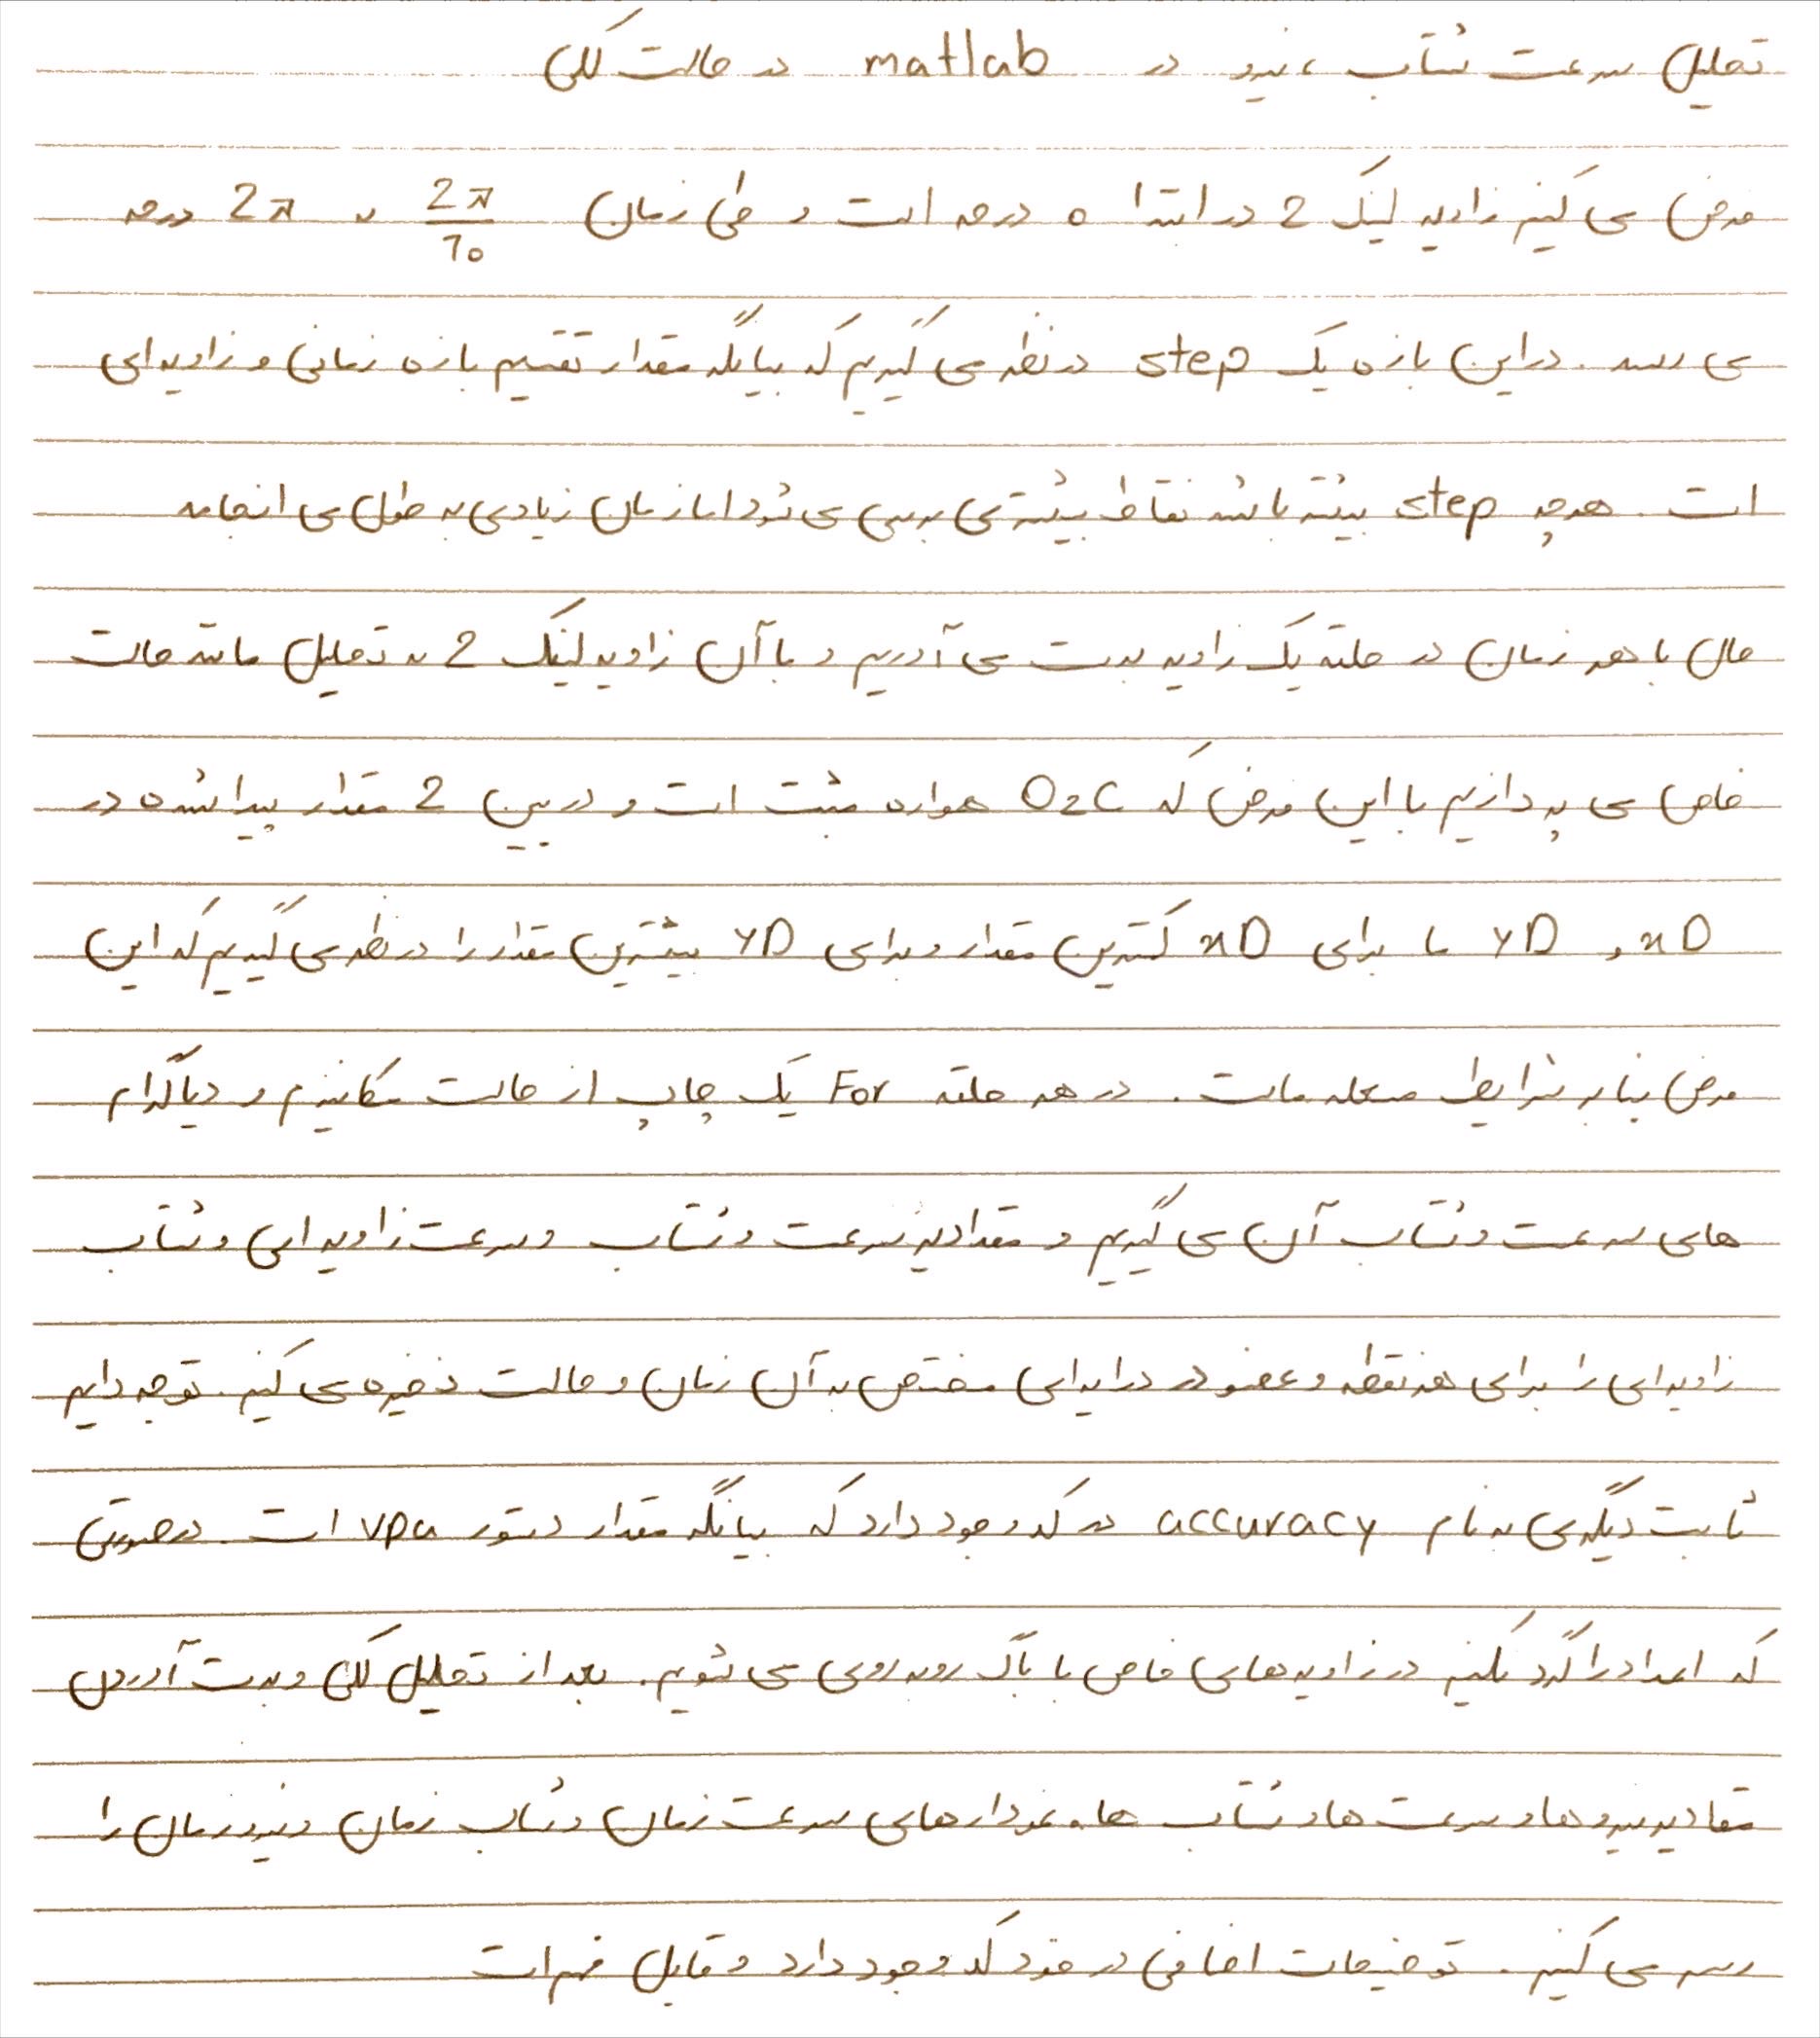 تحلیل سرعت شتاب ، نیرو در matlab در حالت کلی
فرض می کنیم زاویه لینک 2 در ابتدا 0 درجه است و طی زمان 2π/10 به 2π درجه
می رسد. در این بازه یک step در نظر می گیریم که بیانگر مقدار تقسیم بازه زمانی و زاویه ای
است. هرچه step بیشتر باشد نقاط بیشتری بررسی می شود اما زمان زیادی به طول می انجامد
حال با هر زمان در حلقه یک زاویه بدست می آوریم و با آن زاویه لینک 2 به تحلیل مانند حالت
خاص می پردازیم با این فرض که O2C همواره مثبت است و در بین 2 مقدار پیدا شده در
xD و yD ما برای xD کمترین مقدار و برای yD بیشترین مقدار را در نظر می گیریم که این
فرض بنابر شرایط مسئله ماست. در هر حلقه For یک چاپ از حالت مکانیزم و دیاگرام
های سرعت و شتاب آن می گیریم و مقادیر سرعت و شتاب و سرعت زاویه ای و شتاب
زاویه ای را برای هر نقطه و عضو در درایه ای مختص به آن زمان و حالت ذخیره می کنیم. توجه داریم
ثابت دیگری به نام accuracy در کد وجود دارد که بیانگر مقدار دستور vpa است. در صورتی
که اعداد را گرد نکنیم در زاویه های خاص با باگ روبه روی می شویم. بعد از تحلیل کلی و بدست آوردن
مقادیر نیرو ها و سرعت ها و شتاب ها، نمودار های سرعت زمان و شتاب زمان و نیرو زمان را
رسم می کنیم. توضیحات اضافی در خود کد وجود دارد و قابل فهم است